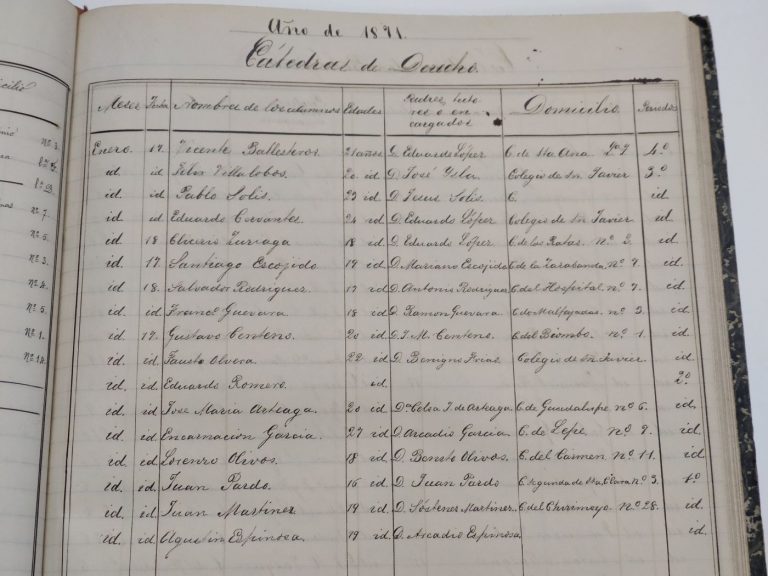 cilio
nº 3.
nº 7.
nº 5.
nº 3.
nº 4.
nº 5.
nº 1.
nº 14.
Año de 1891.
Cátedras de Derecho.
Meses Fechas Nombres de los alumnos Edades Padres tutores o encargados Domicilio Periodos
Enero. 17. Vicente Ballesteros 21 años D. Eduardo López C. de Sta. Ana. 4º
id. id Félix Villalobos 20 id D. José Colegio de Sn Javier 3º
id. id. Pablo Solis 23 id D. Jesus Solis. C. id.
id. id Eduardo Cervantes 24 id D. Eduardo López Colegio de Sn Javier id.
id. 18 Eluterio Zuriaga 18 id D. Eduardo López C. de las Ratas. nº 2. id.
id. 17. Santiago Escojido 19 id D. Mariano Escojido C. de la Zarabanda nº 7. id.
id 18. Salvador Rodriguez 17 id D. Antonio Rodriguez C. del Hospital nº 7. id.
id id. Francº Guevara 18 id D. Ramon Guevara C. de Malfajadas nº 3. id.
id. 19. Gustavo Centeno 20 id D. J. M. Centeno C. del Biombo. nº 1. id.
id. id. Fausto Olvera 22 id D. Benigno Frias Colegio de Sn Javier. id.
id. id. Eduardo Romero id 2º
id. id. Jose Maria Arteaga. 20 id. Dª Celsa de Arteaga C. de Guadalupe nº 6. id.
id. id. Encarnación Garcia. 27 id D. Arcadio Garcia. C. de Lope nº 9. id.
id. id. Lorenzo Olvos. 18 id D. Benito Olvos. C. del Carmen nº 11. id.
id. id. Juan Pardo 16 id D. Juan Pardo C. Segunda de Sta Clara nº 3. 1º
id. id. Juan Martinez 19 id D. Sóstenes Martinez C. del Chirimoyo nº 28. id.
id. id. Agustin Espinosa 19 id. D. Arcadio Espinosa id.